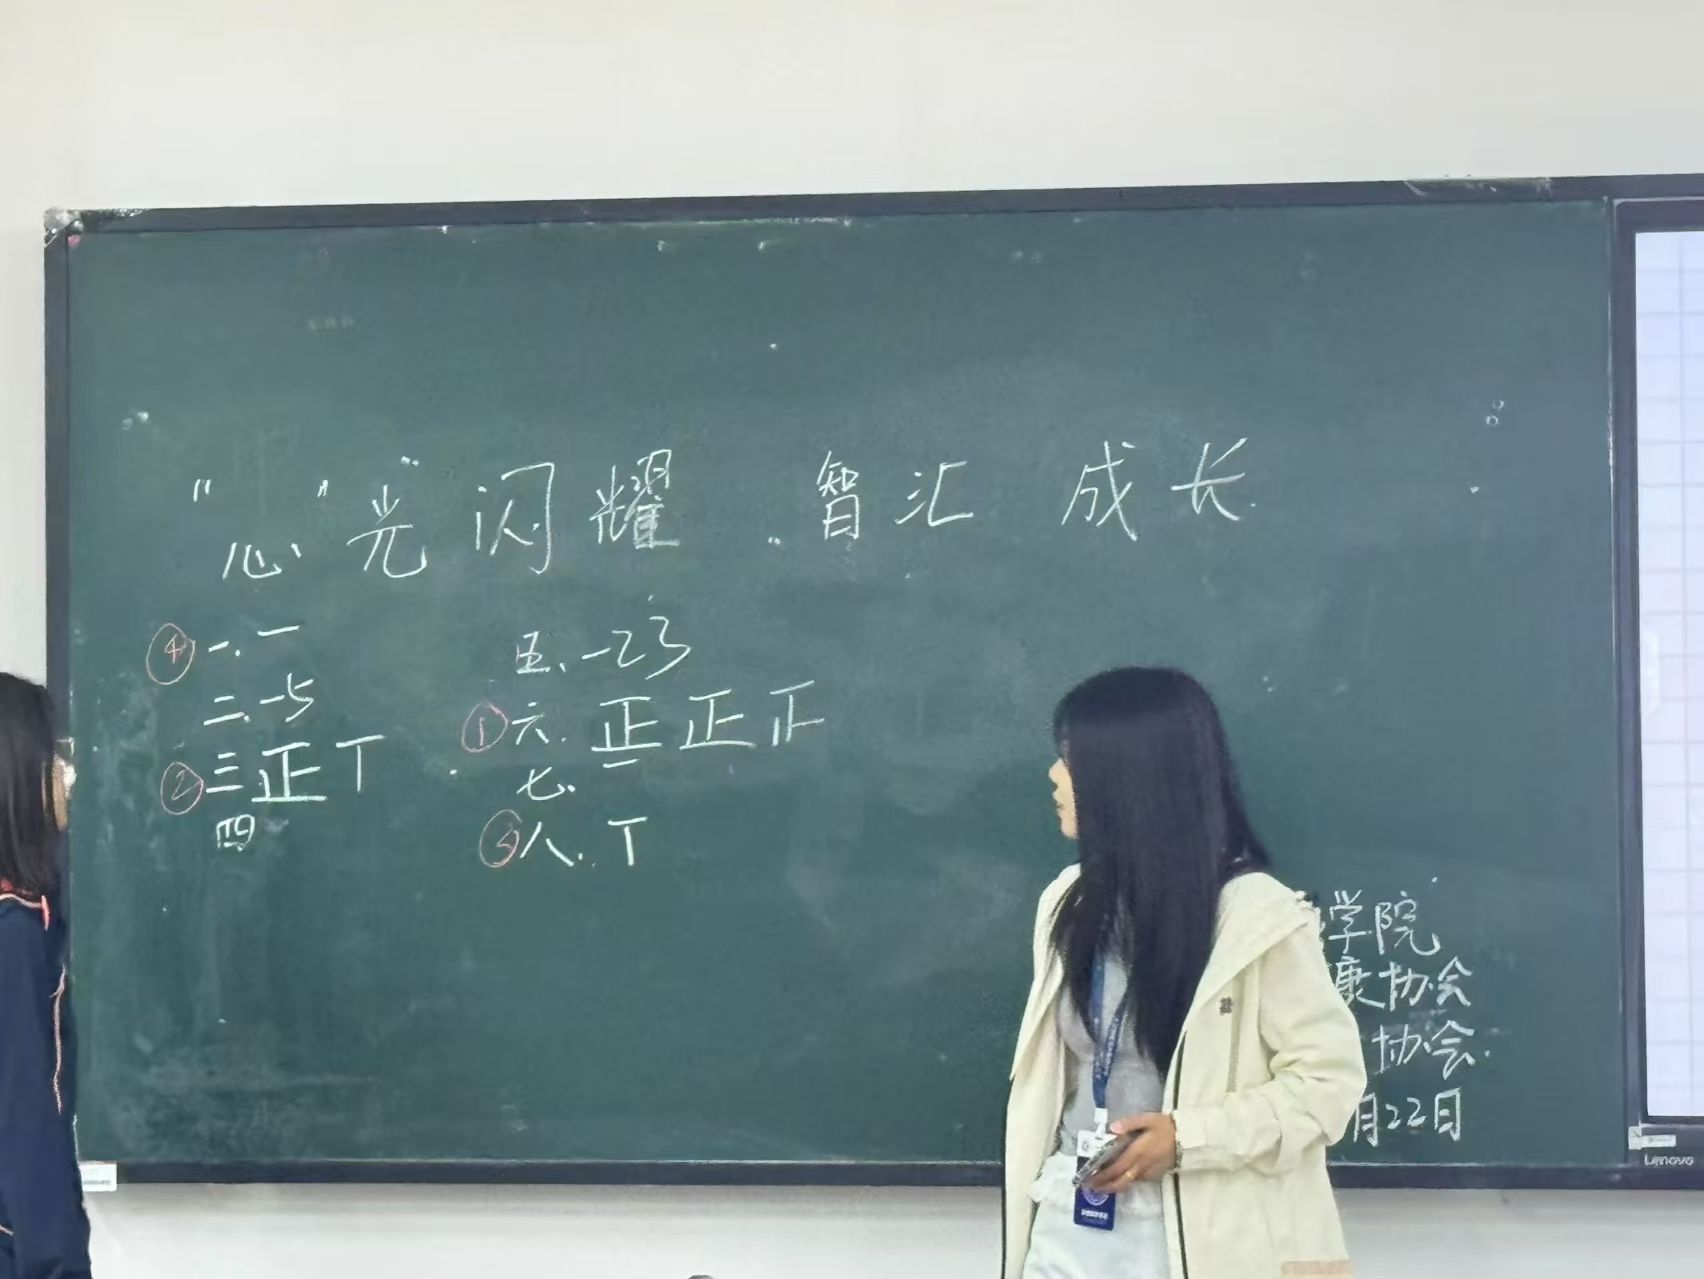 "心"光闪耀.智汇成长
④一.一
二.-5
②三正丅
四
五.-23
①六.正正正
七.一
③八.丅
学院
康协会
协会.
月22日
Lenovo